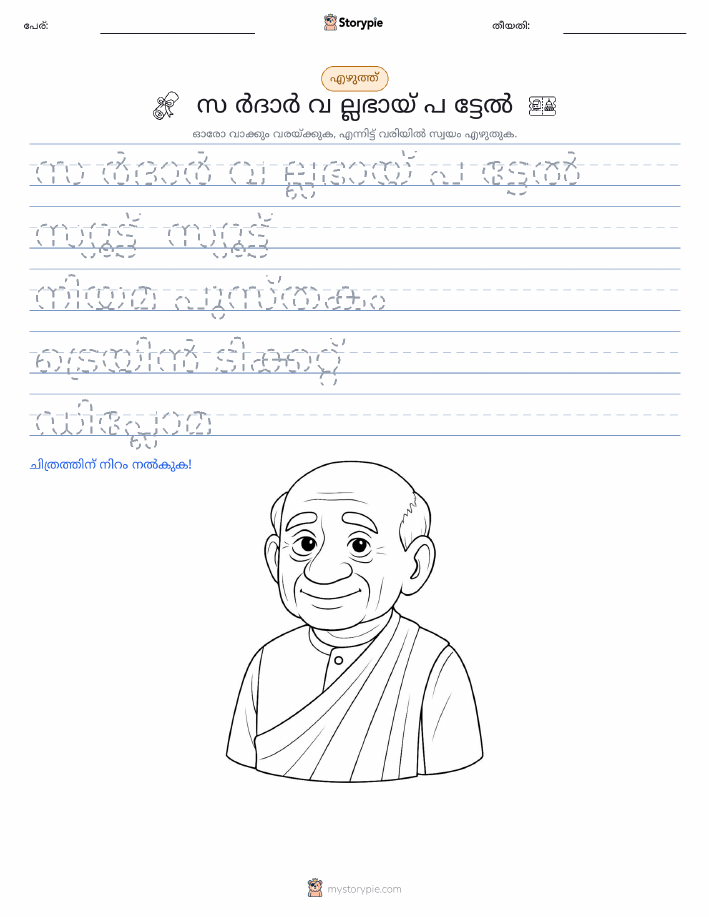 പേര്:
Storypie
തീയതി:
എഴുത്ത്
സ ർദാർ വ ല്ലഭായ് പ ട്ടേൽ
ഓരോ വാക്കും വരയ്ക്കുക, എന്നിട്ട് വരിയിൽ സ്വയം എഴുതുക.
സ ർദാർ വ ല്ലഭായ് പ ട്ടേൽ
സ്യൂട്ട് സ്യൂട്ട്
നിയമ പുസ്തകം
ട്രെയിൻ ടിക്കറ്റ്
ഡിപ്ലോമ
ചിത്രത്തിന് നിറം നൽകുക!
mystorypie.com